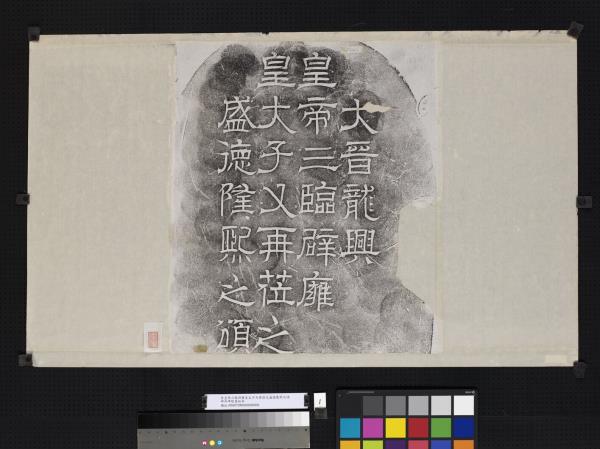 大晉龍興
皇帝三臨辟雍
皇大子又再莅之
盛德隆熙之頌